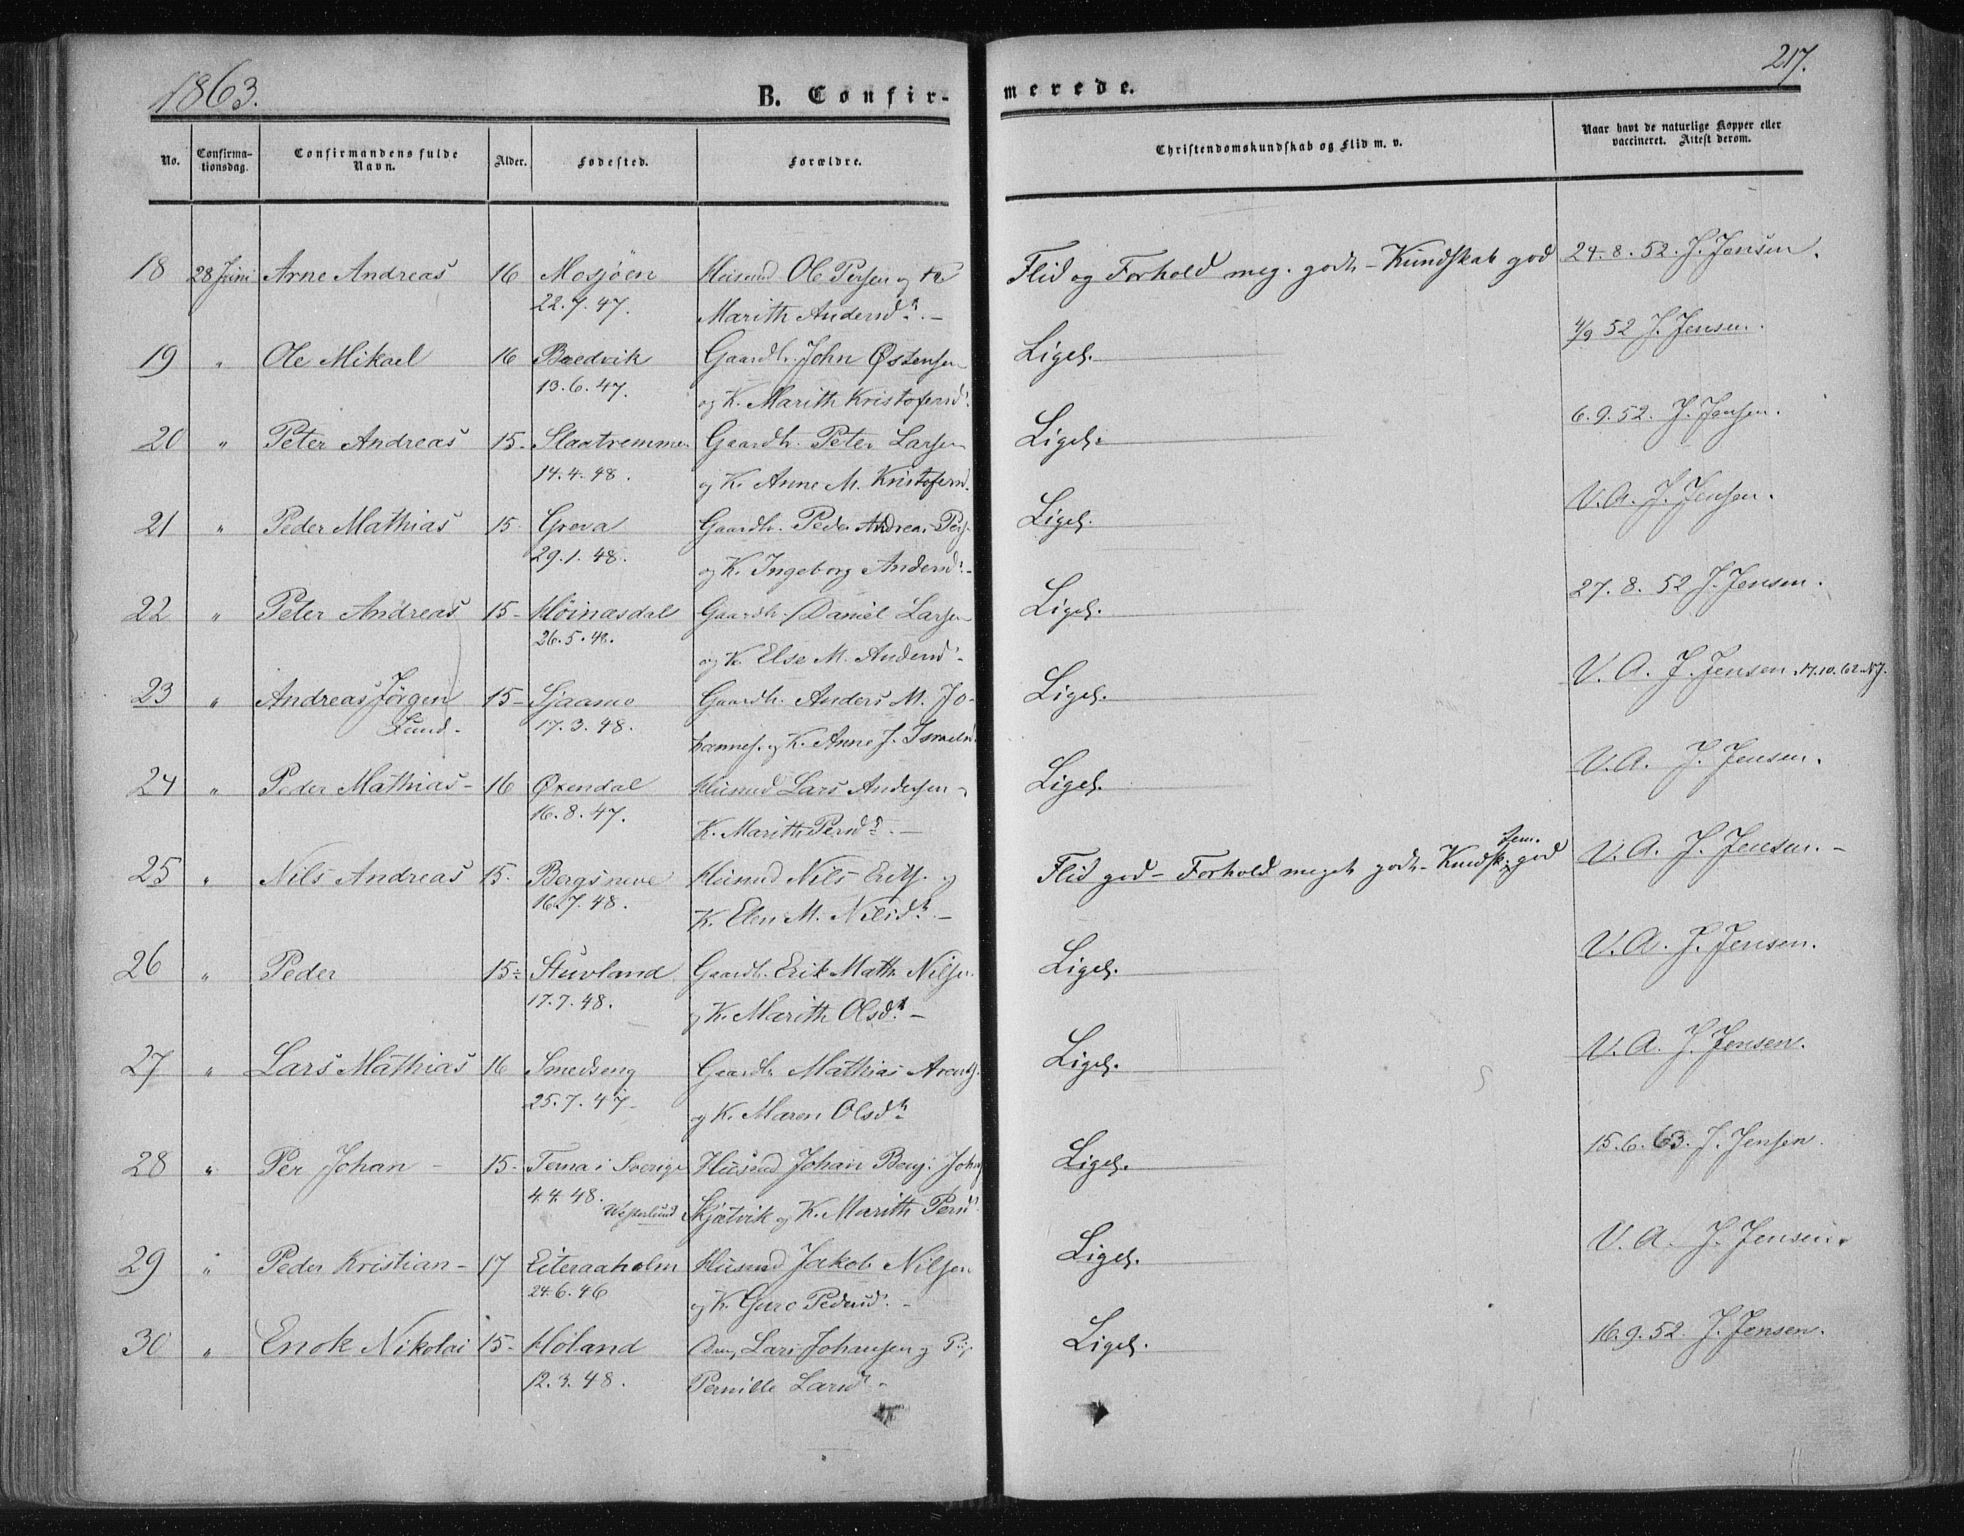 1863.
B. Confir-
merede.
217.
No.
Confirma-
tionsdag.
Confirmandens fulde
Navn.
Alder.
Fødested.
Forældre.
Christendomskundskab og Flid m. v.
Naar havt de naturlige Kopper eller
vaccineret. Attest derom.
18 28 Juni Arne Andreas 16 Mosjøen Husmd Ole Persen og K Flid og Forhold meg. godt - Kundskab god 24.8.52. J. Jensen.
22.7.47. Marith Andersdr. -
19 " Ole Mikael 16 Baedvik Gaardb. John Østensen Ligel. 4/9 52 J. Jensen.
13.6.47. og K. Marith Kristofersd.
20 " Peter Andreas 15- Slaatremmen Gaardb. Peter Larsen Ligel. 6.9.52. J. Jensen.
14.4.48. og K. Anne M. Kristofersd.
21 " Peder Mathias 15- Greva Gaardb. Peder Andreas Pers. Ligel. V.A. J. Jensen.
29.1.48. og K. Ingeborg Andersdr. -
22 " Peter Andreas 15- Høinasdal Gaardb. Daniel Larsen Ligel. 27.8.52 J. Jensen.
26.5.48. og K. Else M. Andersdr. -
23 " Andreas Jørgen 15- Sjaamo Gaardb. Anders M. Jo- Ligel. V.A. J. Jensen. 17.10.62. NJ.
Lund. 17.3.48. hannes. og K. Anne J. Israelsd.
24 " Peder Mathias - 16 Oxendal Husmd Lars Andersen - Ligel. V.A. J. Jensen.
16.8.47. K. Marith Persdr. -
25 " Nils Andreas 15- Bergsneve Husmd Nils Eriks. og Flid god - Forhold meget godt - Kundsk. tem. god V.A. J. Jensen. -
16.7.48. K. Elen M. Nilsdr. -
26 " Peder 15- Stuvland Gaardb. Erik Math. Nilsen Ligel. V.A. J. Jensen.
17.7.48. og K. Marith Olsdr. -
27 " Lars Mathias 16 Smedseng Gaardb. Mathias Arents. Ligel. V.A. J. Jensen.
25.7.47. og K. Maren Olsdr.
28 " Per Johan - 15- Terna i Sverige Husmd Johan Benj. Johns Ligel. 15.6.63. J. Jensen.
4.4.48. Westerlund Skjætvik og K. Marith Persd.
29 " Peder Kristian - 17 Eiteraaholm Husmd Jakob Nilsen Ligel. V.A. J. Jensen.
24.6.46 og K. Guro Pedersd. -
30 " Enok Nikolai 15- Høland Lars Johansen og P. Ligel. 16.9.52. J. Jensen.
12.3.48. Pernille Larsd. -